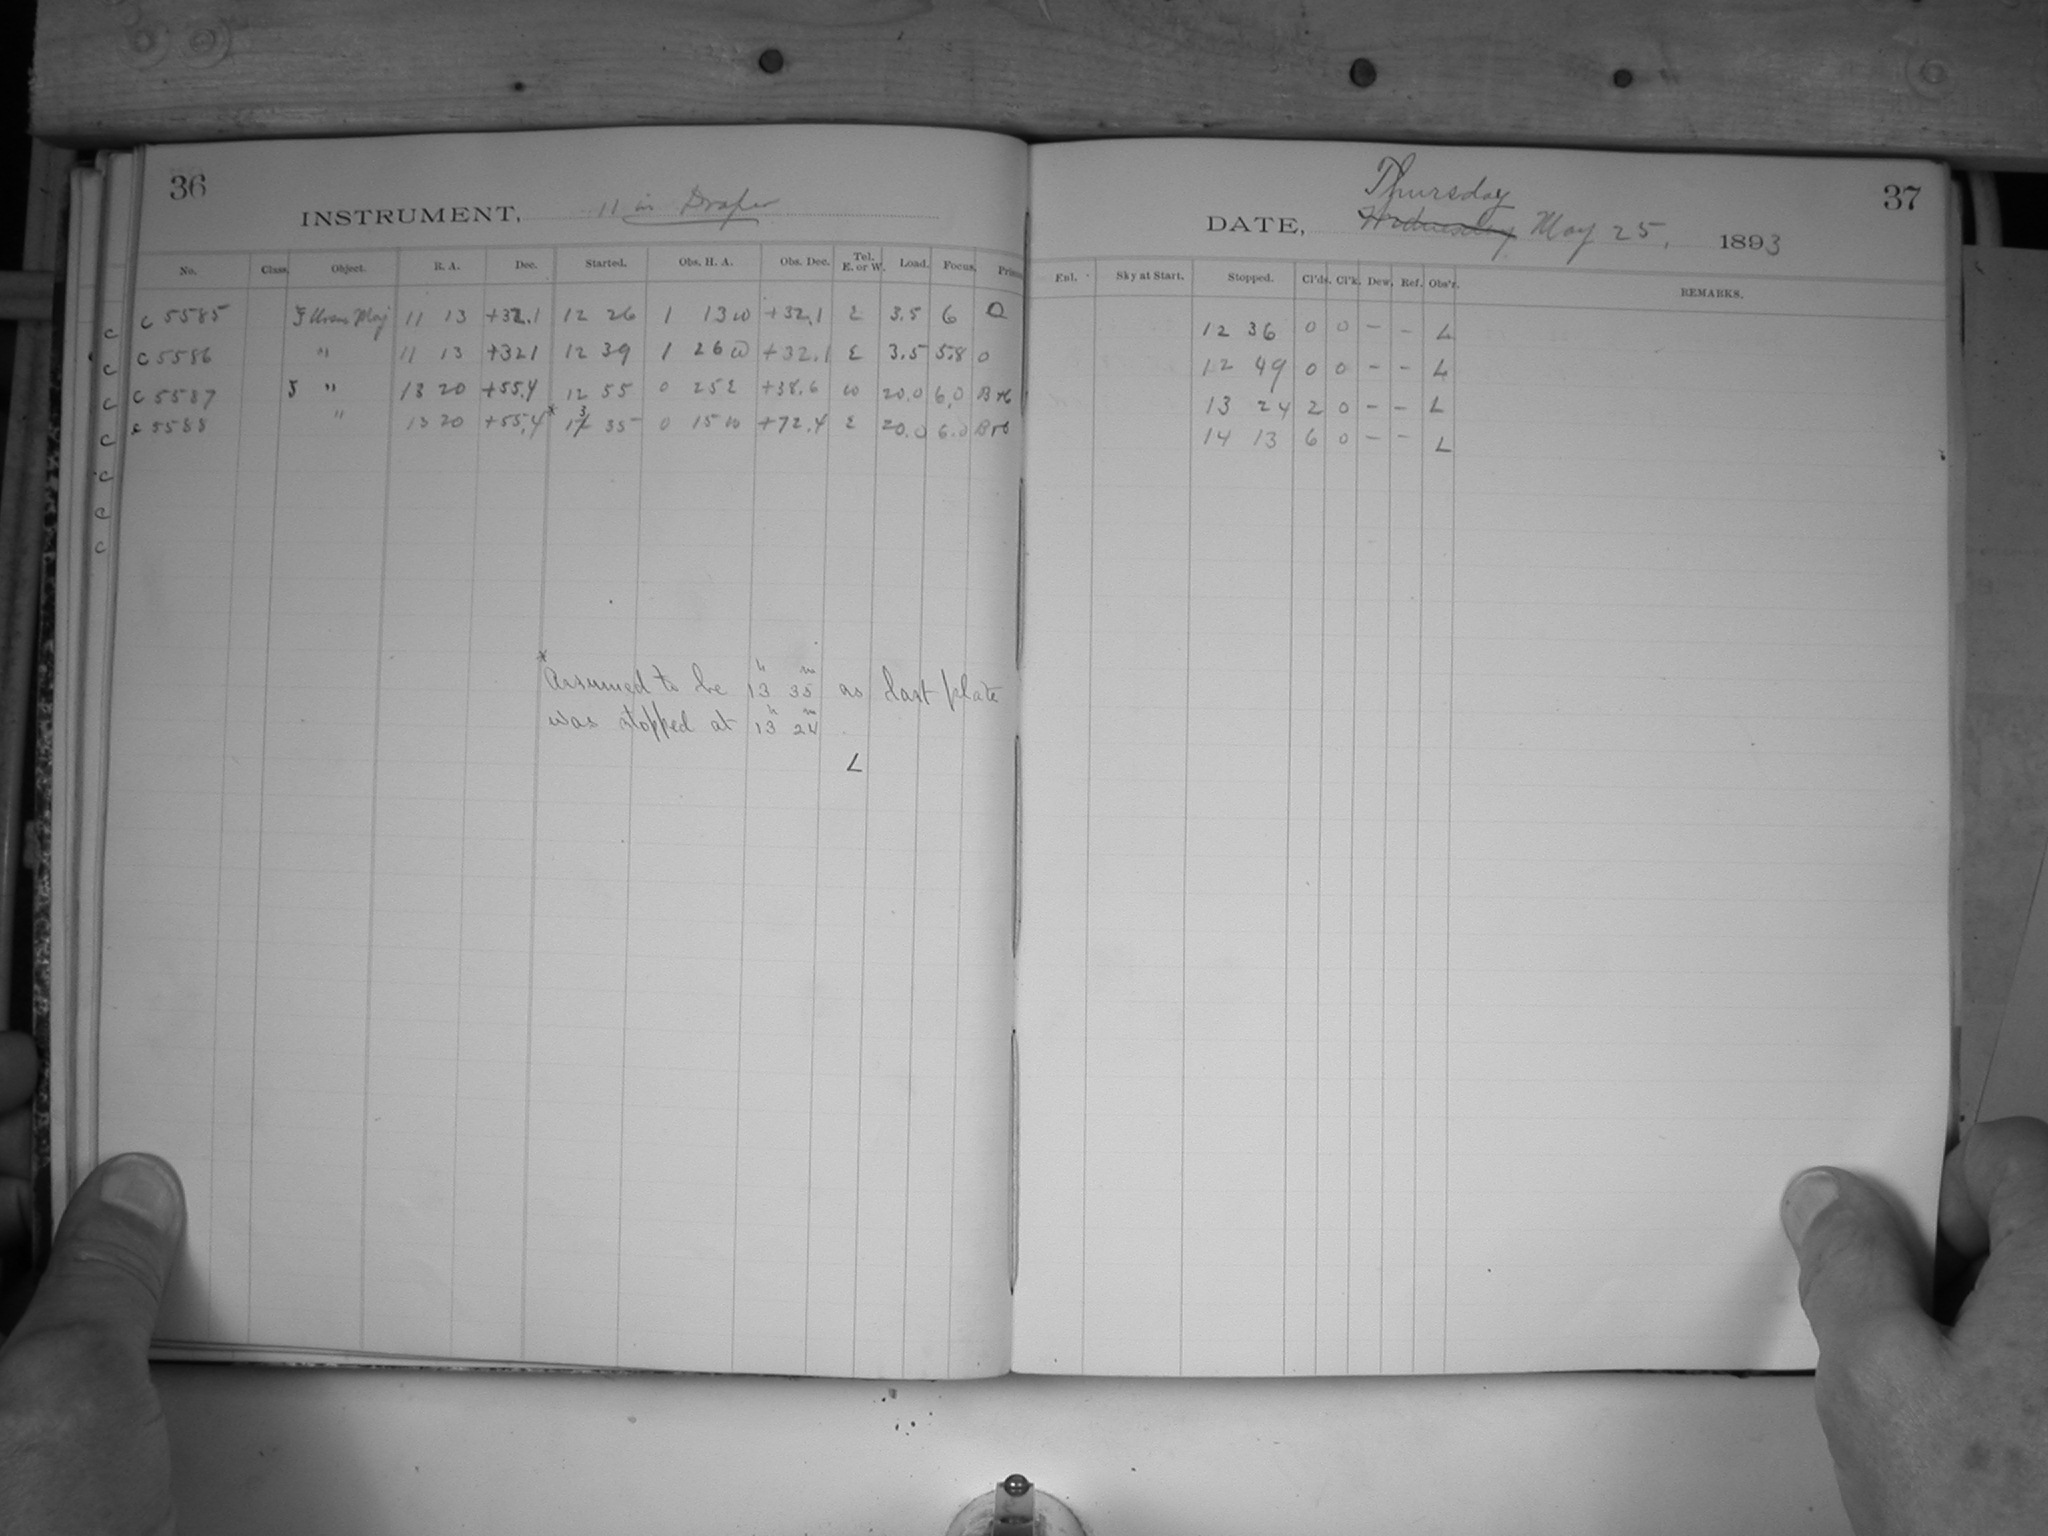 36
INSTRUMENT, 11 in Draper
No. Class. Object. R. A. Dec. Started. Obs. H. A. Obs. Dec. Tel. E. or W. Load. Focus.
c 5585 ξ Ursae Maj 11 13 +32.1 12 26 1 13 W +32.1 E 3.5 6 O
c 5586 " 11 13 +32.1 12 39 1 26 W +32.1 E 3.5 5.8 O
c 5587 ζ " 13 20 +55.4 12 55 0 25 E +38.6 W 20.0 6.0
c 5588 " 13 20 +55.4 * 13 35 0 15 W +72.4 E 20.0 6.0
c
c
c
c
c
c
c
* Assumed to be 13 h 35 m as last plate
was stopped at 13 h 24 m
L
Thursday
37
DATE, Wednesday May 25, 1893
Enl. Sky at Start. Stopped. Cl'ds. Cl'k. Dew. Ref. Obs'r. REMARKS.
12 36 0 0 - - L
12 49 0 0 - - L
13 24 2 0 - - L
14 13 6 0 - - L